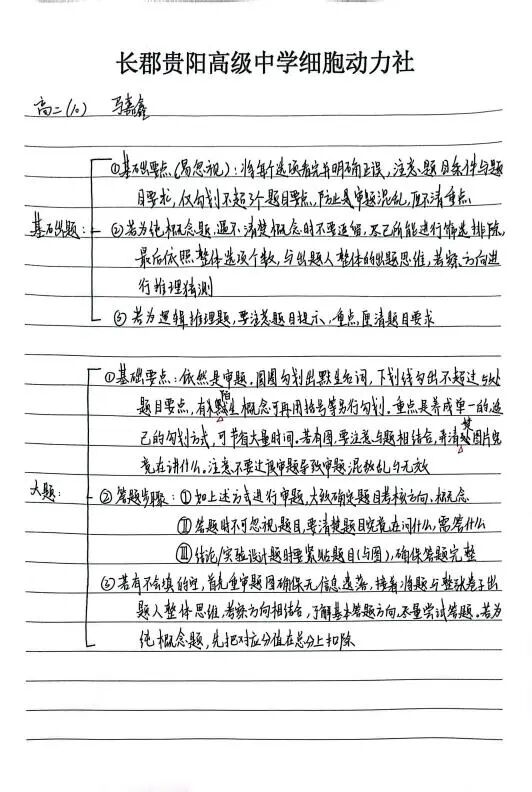 长郡贵阳高级中学细胞动力社
高二(10) 马嘉鑫
①基础要点(易忽视):将每个选项看完并明确正误,注意题目条件与题
目要求,仅勾划不超3个题目要点,防止是审题混乱,厘不清重点
基础题:
②若为纯概念题,遇不清楚概念时不要迟缩,尽己所能进行筛选排除,
最后依照整体选项个数,与出题人整体的出题思维,考察方向进
行推理猜测
③若为逻辑推理题,要注意题目提示,重点厘清题目要求
①基础要点:依然是审题。圆圈勾划出默生名词,下划线勾出不超过5处
题目要点,有陌生概念可再用括号等另行勾划。重点是养成单一的自
己的勾划方式,可节省大量时间。若有图,要注意与题相结合,弄清楚图片究
竟在讲什么。注意不要过度审题导致审题混乱与无效
大题:
②答题步骤:Ⅰ如上述方式进行审题,大致确定题目考核方向、概念
Ⅱ答题时不可忽视题目,要清楚题目究竟在问什么,需答什么
Ⅲ结论/实验设计题时要紧贴题目(与图),确保答题完整
③若有不会填的空,首先重审题图确保无信息遗落,接着将题与整张卷子出
题人整体思维,考察方向相结合,了解基本答题方向,尽量尝试答题。若为
纯概念题,先把对应分值在总分上扣除